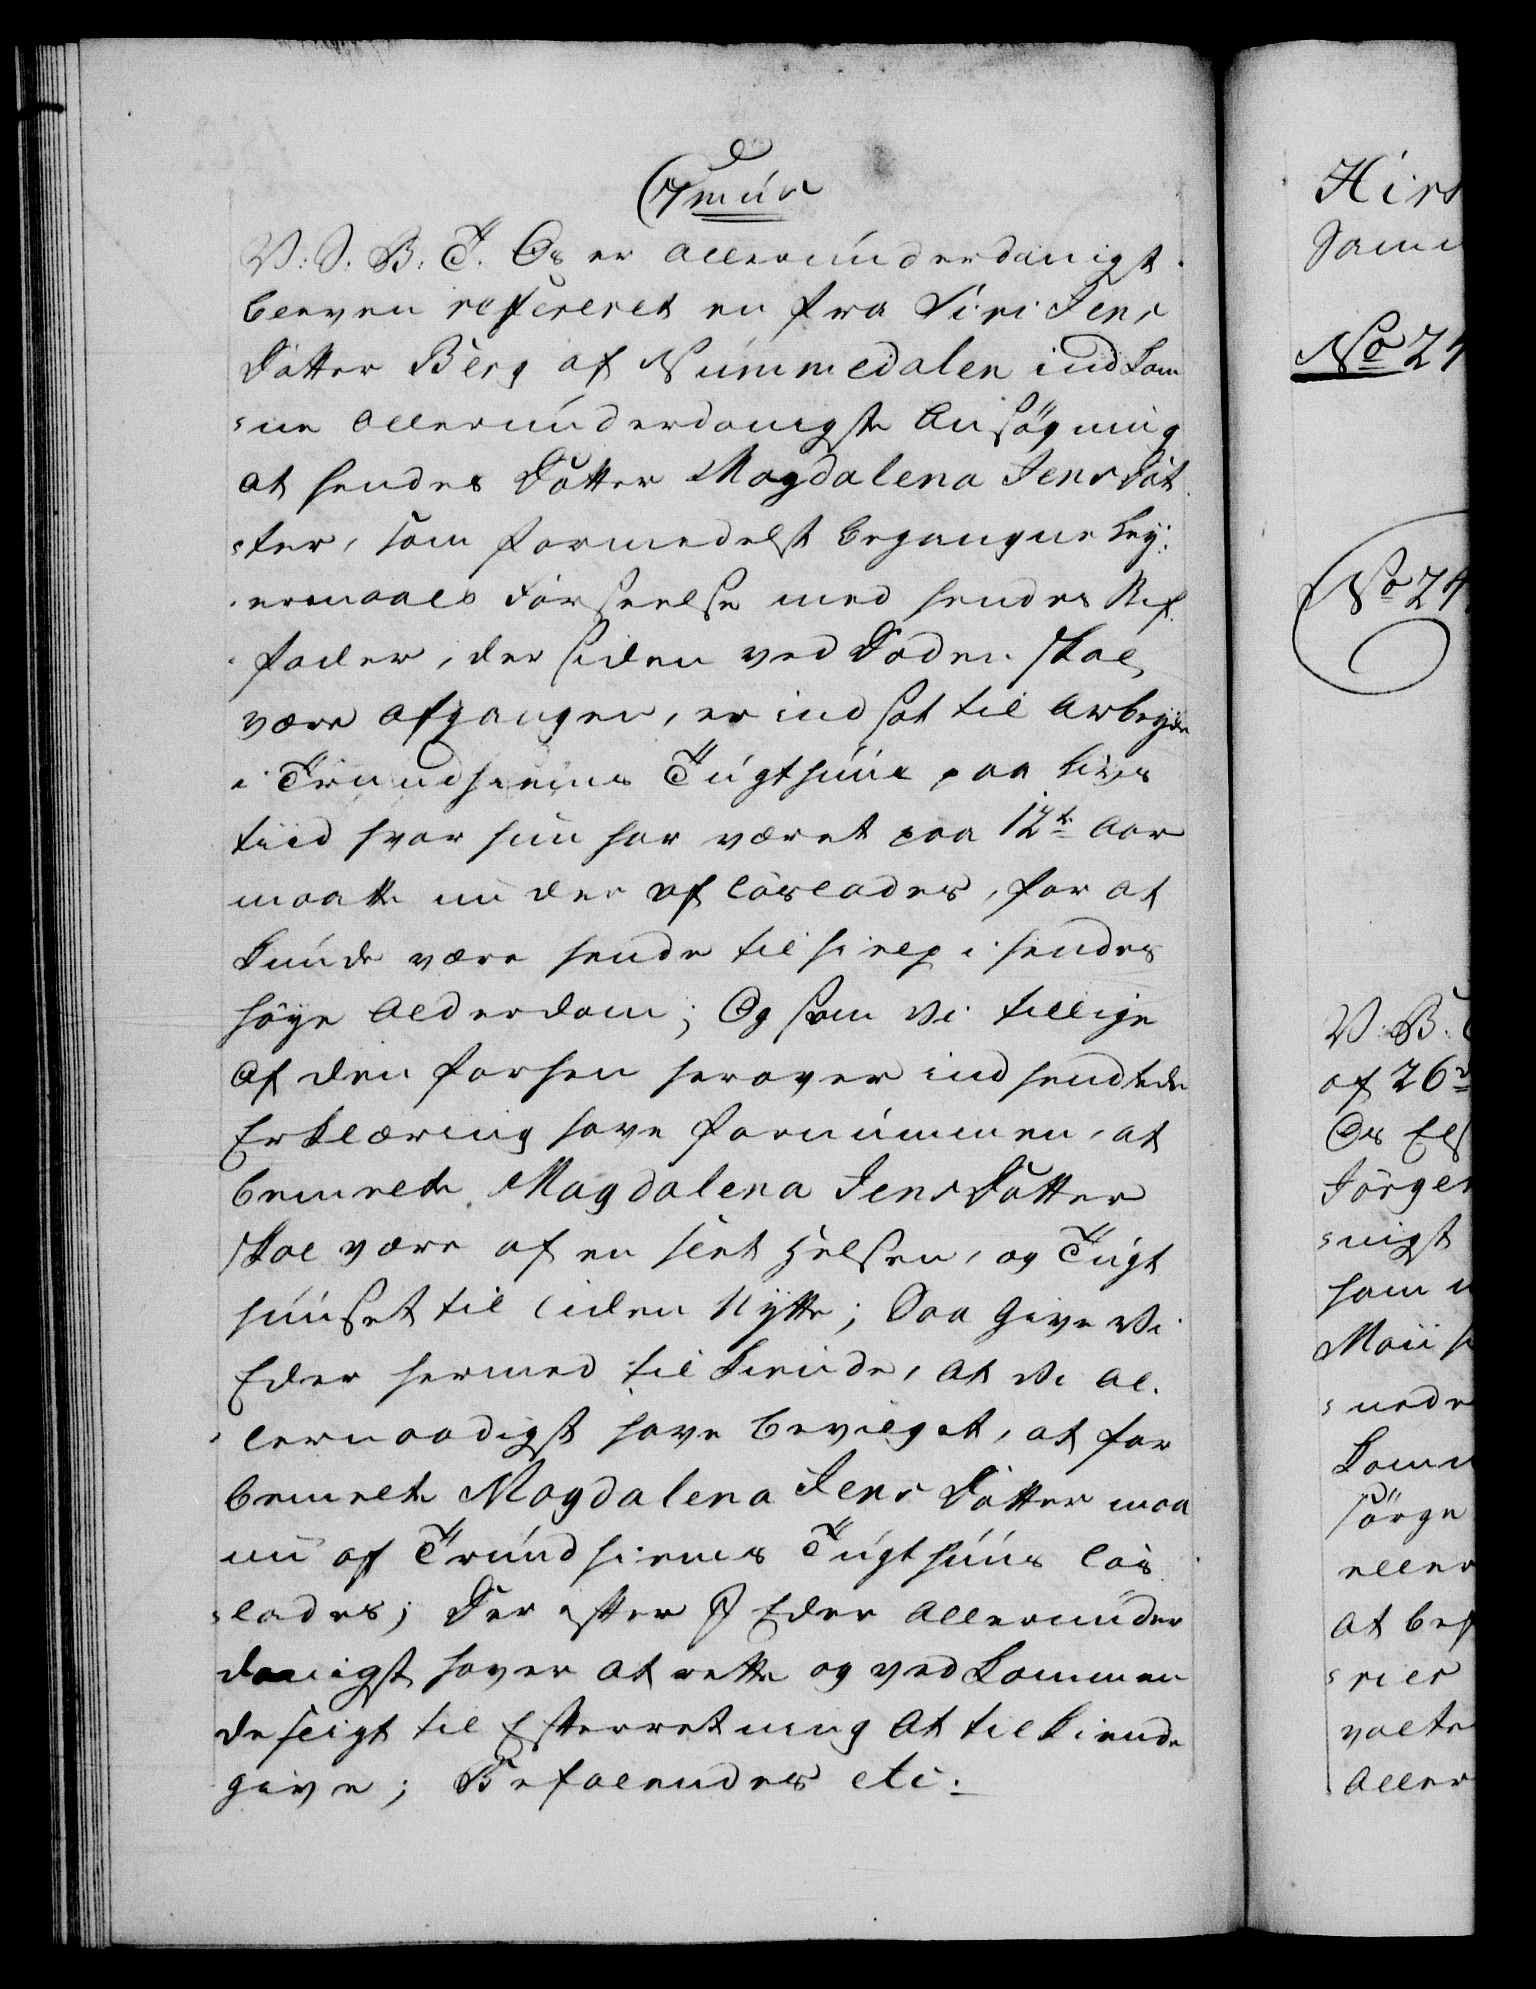 V: S. B: T. Os er allerunderdanigst
bleven refereret en fra Siri Jens
Dötter Berg af Nummedalen indkom
ne allerunderdanigste Ansögning
at hendes Dötter Magdalena Jens Döt
ter, som formedelst begangne Ley:
ermaals Forseelse med hendes Stif
fader, der siden ved Döden skal
være afgangen, er indsat til Arbeyde
i Trundhiems Tugthuus paa Livs
tiid hvor hun har været paa 12te Aar
maatte nu der af löslades, for at
kunde være hende til hielp i hendes
höye Alderdom; Og som Vi tillige
af den forhen herover indhendtede
Erklæring have fornummen, at
bemelte Magdalena Jens Dötter
skal være af en slet Helsen, og Tugt
huuset til liden Nytte; Saa give Vi
Eder hermed til kiende, at Vi al
lernaadigst have bevilget, at for
bemelte Magdalena Jens Dötter maa
nu af Trundhiems Tugthuus lös
lades; Der efter I Eder allerunder
danigst haver at rette og vedkommen
de sligt til Efterretning at tilkiende
give; Befalendes etc.
Hirs
Sam
No 24
No 24
V: B.
af 26
Os El
Jörge
nigst
ham
Maii
nede
Kom
sörge
eller
at bes
ries
valte
Aller